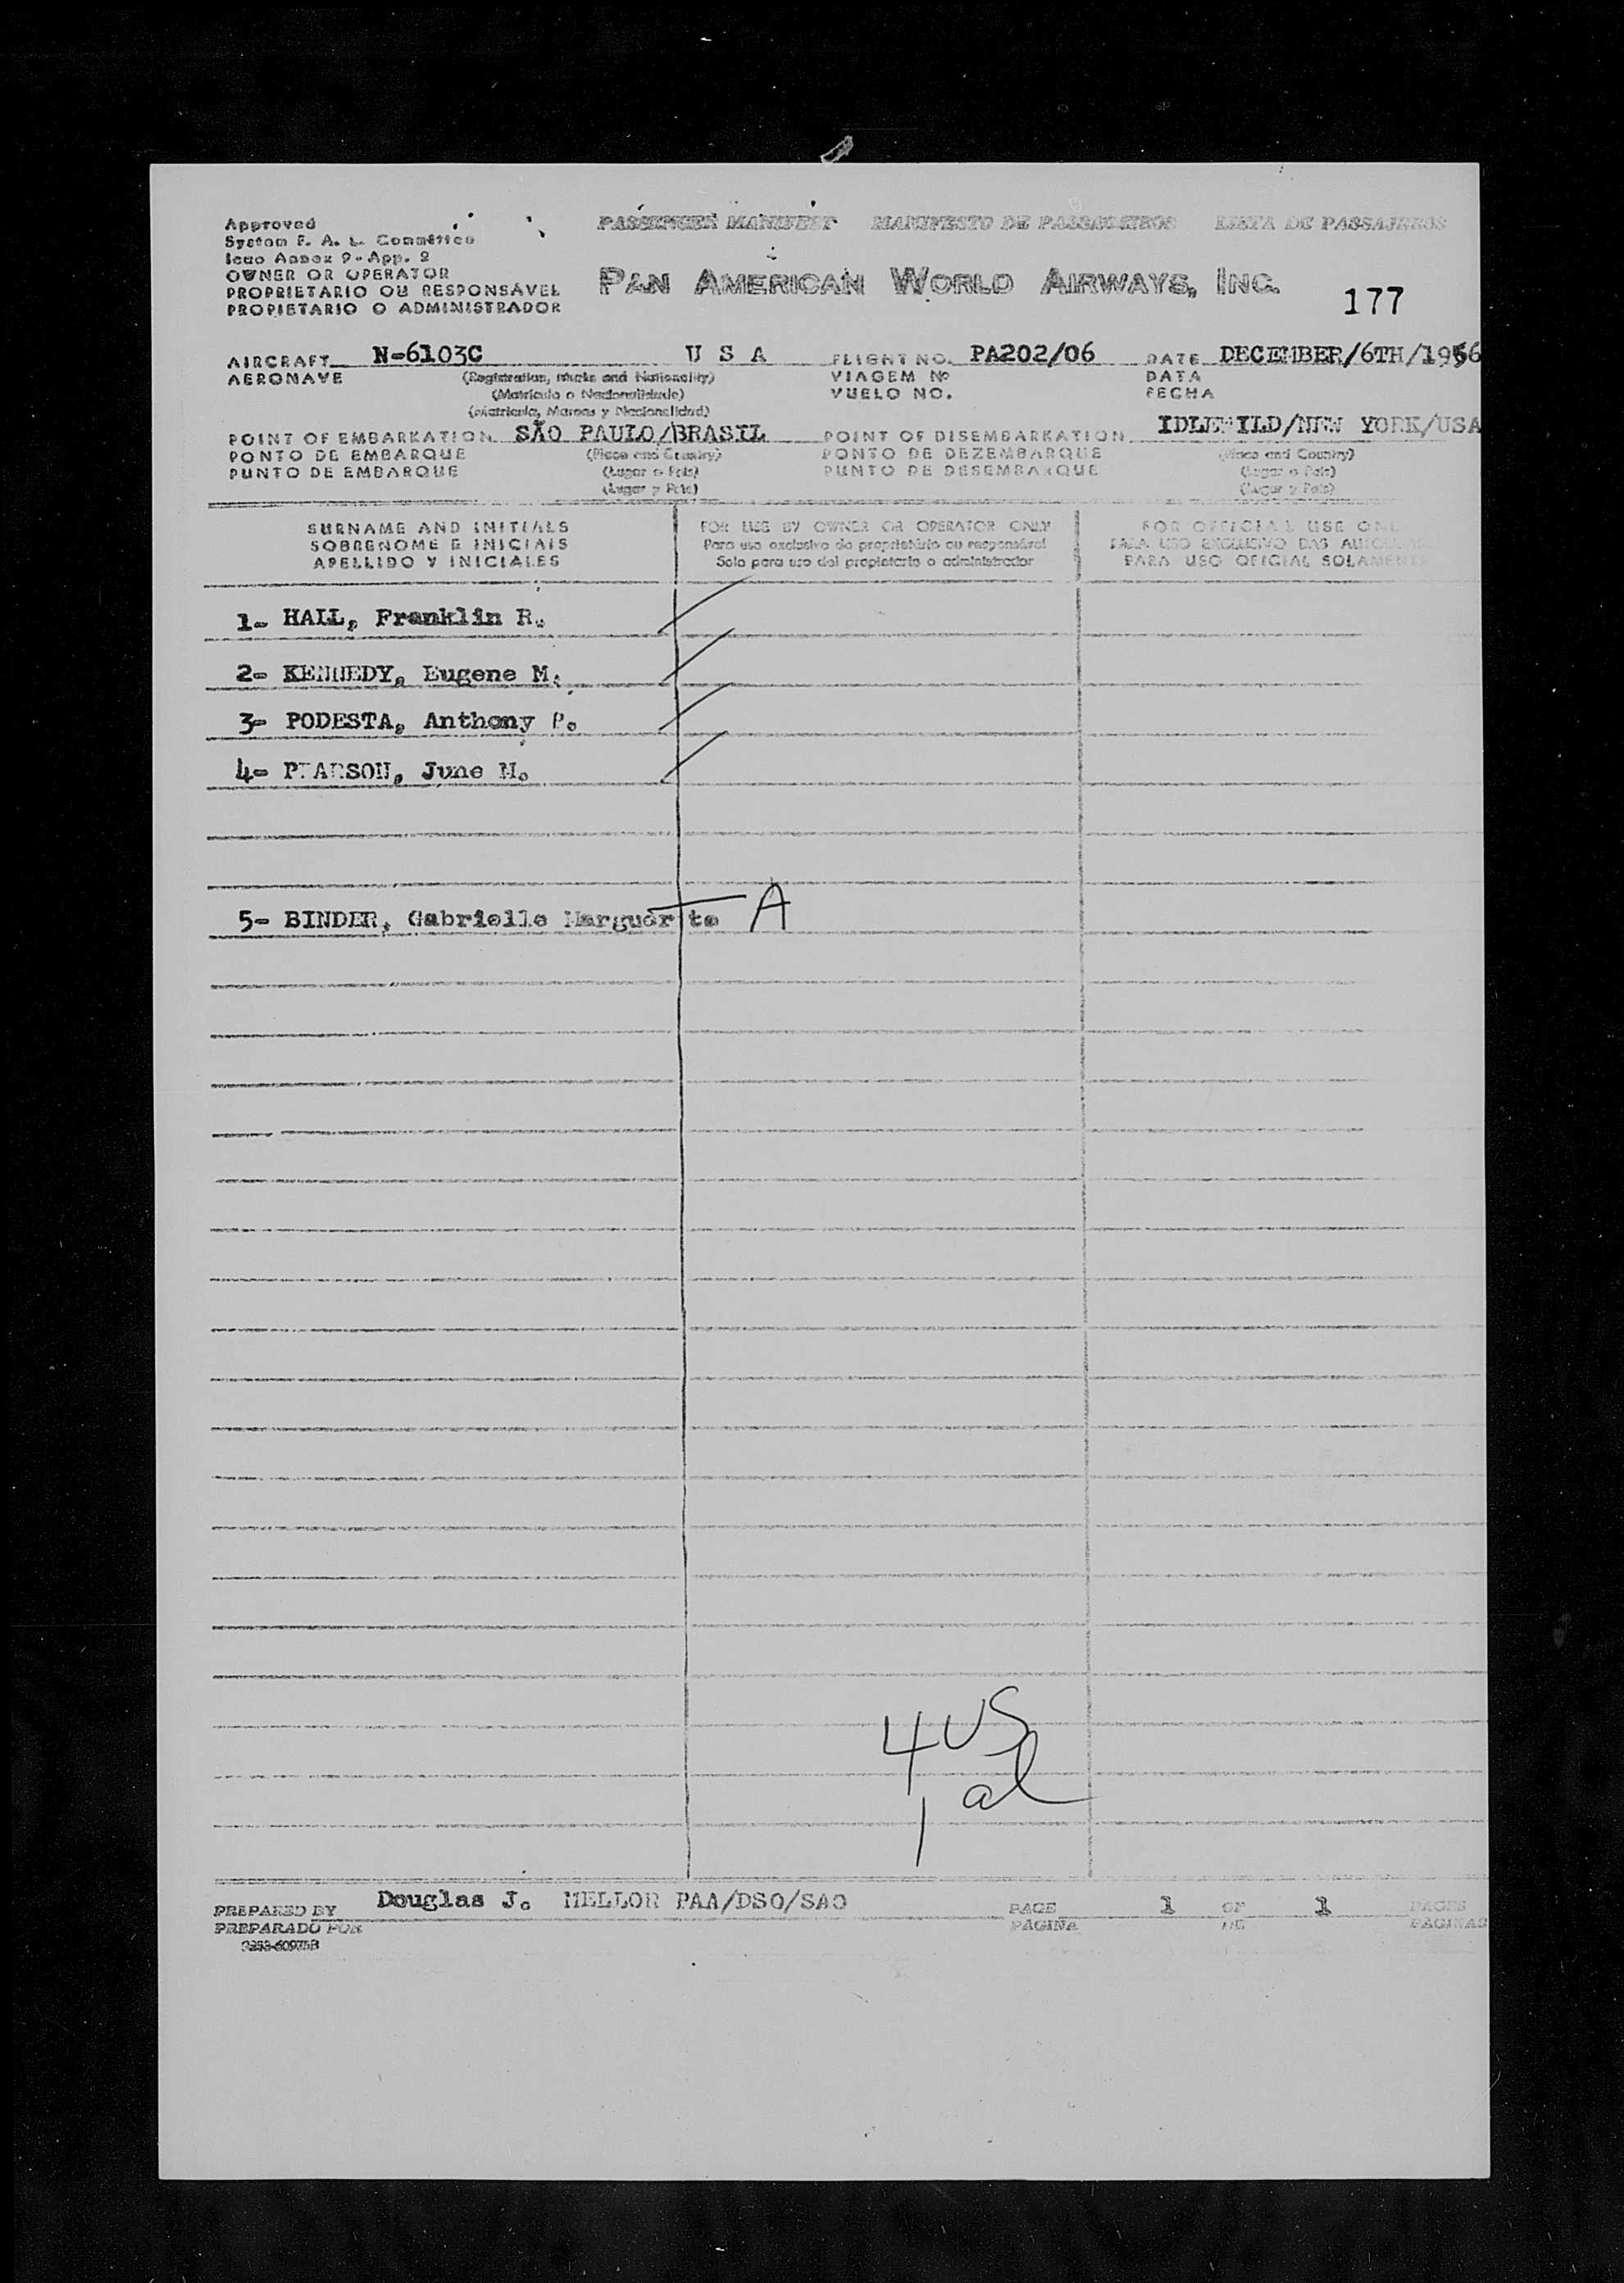 Approved
PASSENGER MANIFEST MANIFESTO DE PASSAGEIROS LISTA DE PASSAJEROS
System F. A. L. Committee
Icao Annex 9 - App. 2
OWNER OR OPERATOR
PROPRIETARIO OU RESPONSÁVEL
PROPIETARIO O ADMINISTRADOR
PAN AMERICAN WORLD AIRWAYS, INC.
177
AIRCRAFT N-6103C U S A FLIGHT NO. PA202/06 DATE DECEMBER/6TH/1956
AERONAVE (Registration, marks and Nationality) VIAGEM Nº DATA
(Matrícula o Nacionalidade) VUELO NO. FECHA
(Matrícula, Marcas y Nacionalidad)
POINT OF EMBARKATION SÃO PAULO/BRASIL POINT OF DISEMBARKATION IDLEWILD/NEW YORK/USA
PONTO DE EMBARQUE (Place and Country) PONTO DE DEZEMBARQUE (Place and Country)
PUNTO DE EMBARQUE (Lugar o País) PUNTO DE DESEMBARQUE (Lugar o País)
(Lugar y País) (Lugar y País)
SURNAME AND INITIALS FOR USE BY OWNER OR OPERATOR ONLY FOR OFFICIAL USE ONL
SOBRENOME E INICIAIS Para uso exclusivo do proprietário ou responsável PARA USO EXCLUSIVO DAS
APELLIDO Y INICIALES Solo para uso del propietario o administrador PARA USO OFICIAL SOLAMENTE
1- HALL, Franklin R.
2- KENNEDY, Eugene M.
3- PODESTA, Anthony P.
4- PEARSON, June M.
5- BINDER, Gabrielle Marguerite A
4 US
1 al
PREPARED BY Douglas J. MELLOR PAA/DSO/SAO PAGE 1 OF 1 PAGES
PREPARADO POR PÁGINA DE PÁGINAS